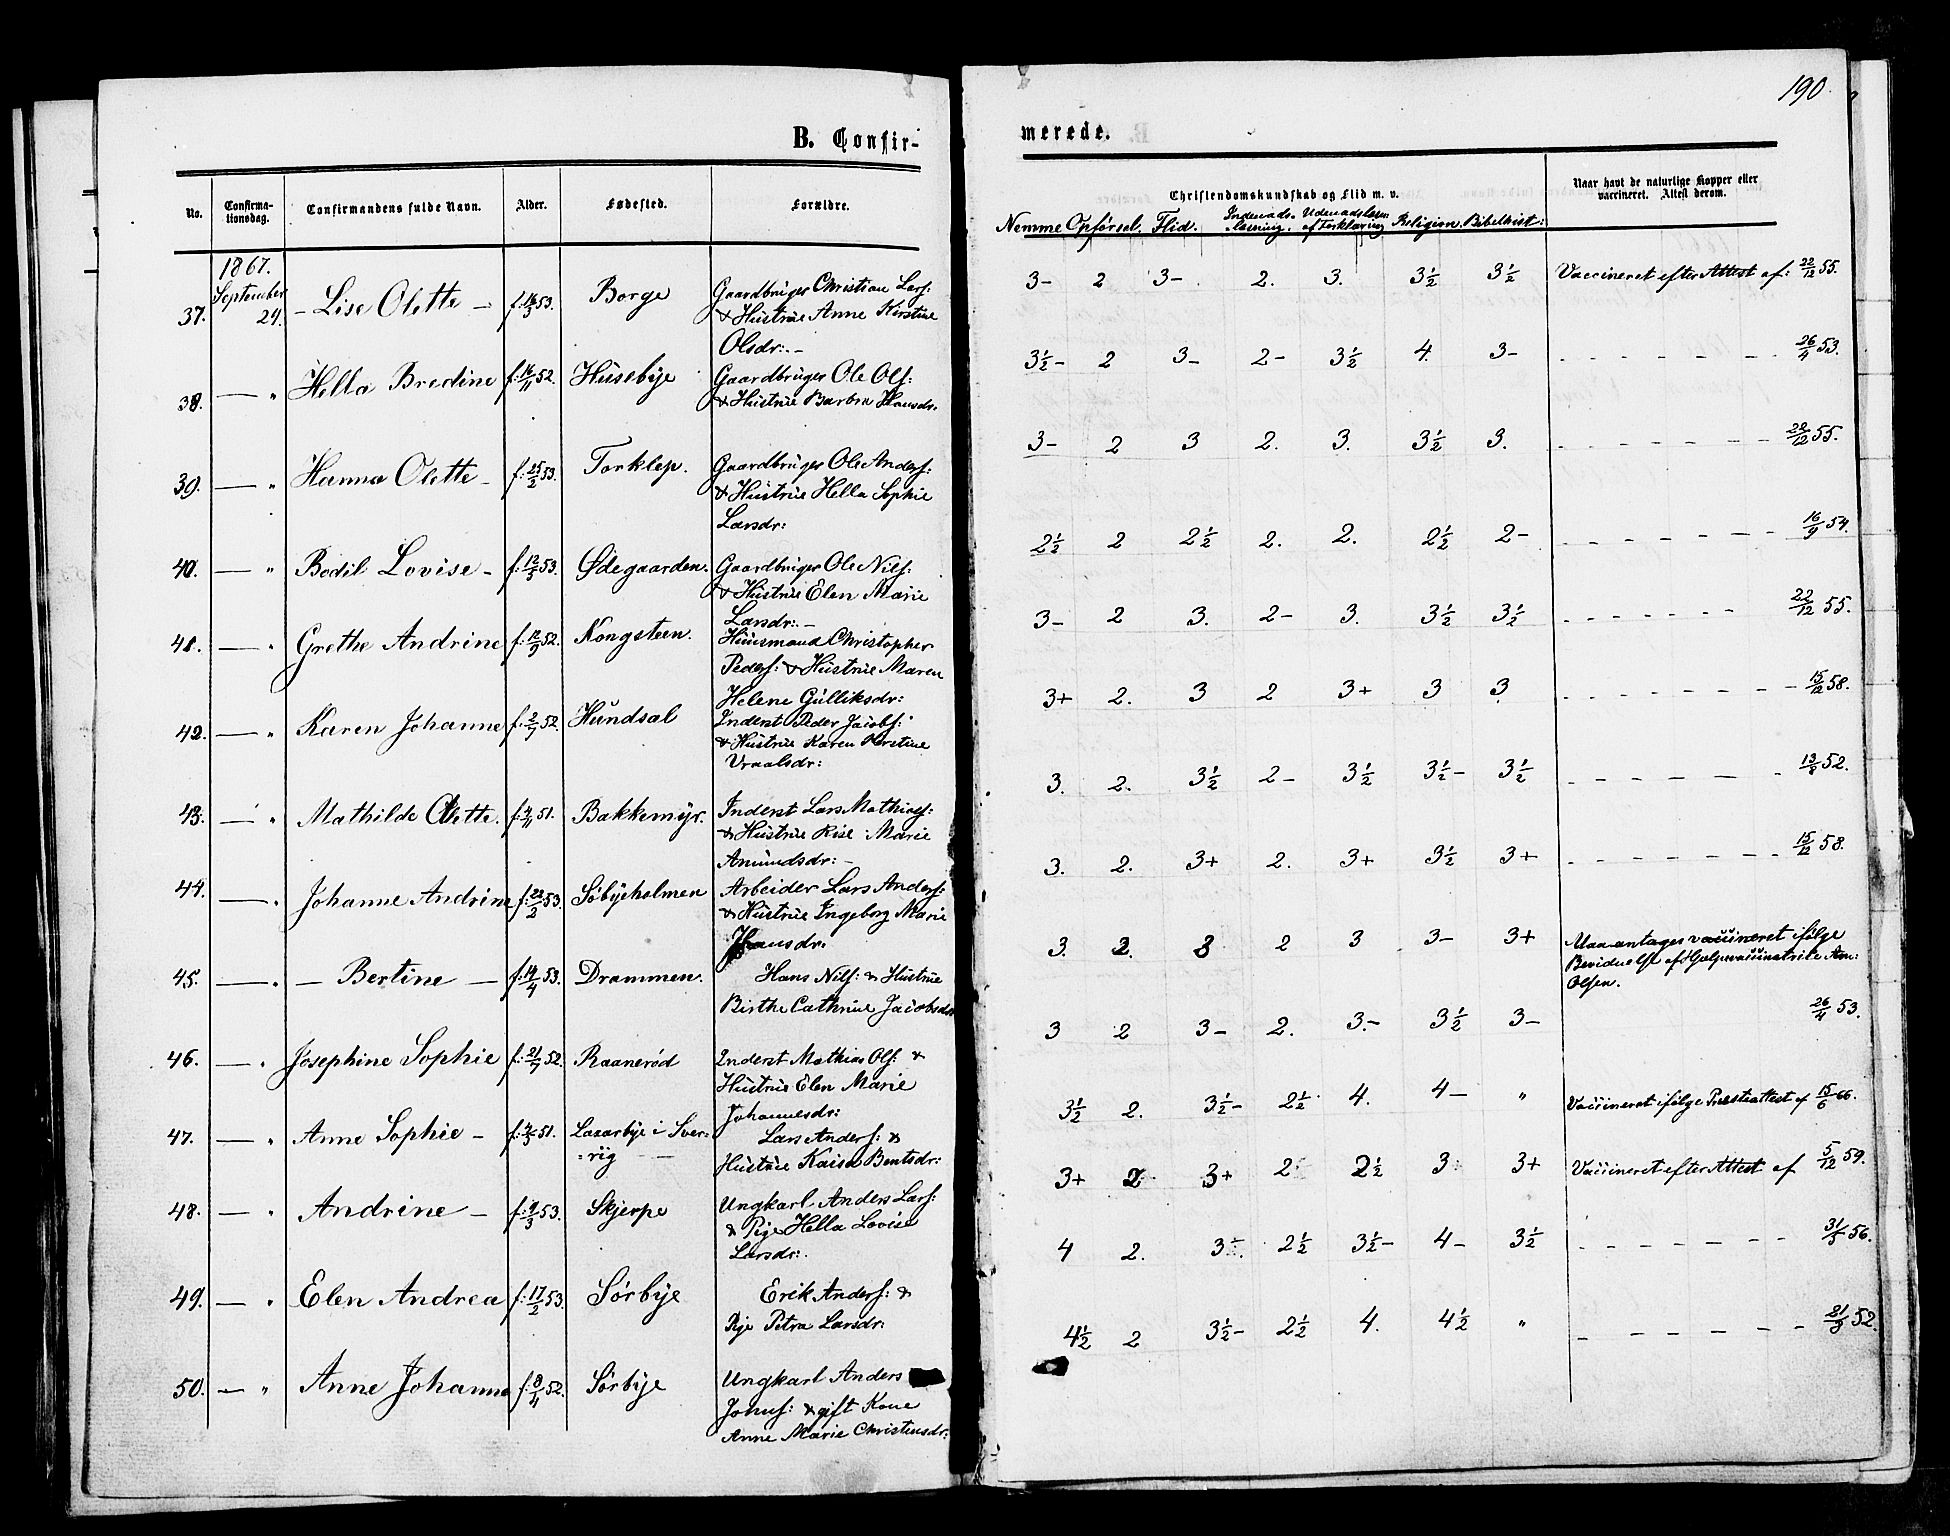 190
B. Confir-
merede.
No.
Confirma-
tionsdag.
Confirmandens fulde Navn.
Alder.
Fødested.
Forældre.
Christendomskundskab og Flid m. v.
Naar havt de naturlige Kopper eller
vaccineret. Attest derom.
Nemme Opførsel. Flid. Religion. Bibelhist:
1867.
September
24.
37. – Lise Olette – Borge Gaardbruger Christian Lars:
& Hustrue Anne Kirstine
Olsdr: –
3– 2 3– 2. 3. 3½ 3½ Vaccineret efter Attest af: 22/12 55.
38. — " Hella Bredine f: 16/11 52. Husebye Gaardbruger Ole Ols:
& Hustrue Barbra Hansdr.
3½– 2 3– 2– 3½ 4. 3– 26/4 53.
39. — " Hanna Olette – f: 25/2 53. Torklep. Gaardbruger Ole Anders:
& Hustrue Hella Sophie
Larsdr:
3– 2 3 2. 3. 3½ 3. 22/12 55.
40. — " Bodil Lovise – f: 12/3 53. Ødegaarden. Gaardbruger Ole Nils:
& Hustrue Elen Marie
Larsdr: –
2½ 2 2½ 2. 2. 2½ 2– 16/9 54.
41. — " Grethe Andrine f: 12/9 52. Kongsteen. Huusmand Christopher
Peders: & Hustrue Maren
Helene Gulliksdr:
3– 2 3. 2– 3. 3½ 3½ 22/12 55.
42. — " Karen Johanne f: 2/7 52. Hundsal Inderst Peder Jacobs:
& Hustrue Karen Kirstine
Vraalsdr:
3+ 2. 3 2 3+ 3 3 15/12 58.
43. — " Mathilde Olette. 51. Bakkemyr. Inderst Lars Mathias:
& Hustrue Lise Marie
Amundsdr: –
3. 2. 3½ 2– 3½ 3½– 3½ 13/8 52.
44. — " Johanne Andrine f: 22/2 53. Søbyeholmen Arbeider Lars Anders:
& Hustrue Ingeborg Marie
Hansdr:
3. 2. 3+ 2. 3+ 3½ 3+ 15/12 58.
45. — " – Bertine – f: 14/4 53. Drammen. Hans Nils: & Hustrue
Birthe Cathrine Jacobsdr
3. 2. 3 2 3 3– 3+ Maa antages vaccineret ifølge
Bevidnelse af Hjælpevaccinatrice Am:
Olsen.
46. — " Josephine Sophie f: 21/7 52. Raanerød Inderst Mathias Ols: &
Hustrue Elen Marie
Johannesdr:
3 2 3– 2. 3.– 3½ 3– 26/4 53.
47. — " Anne Sophie – 51. Lasarbye i Sver-
:rig — Lars Anders: &
Hustrue Kaisa Bentsdr:
3½ 2. 3½– 2½ 4. 4– " Vaccineret ifølge Præsteattest af 15/6 66.
48. — " Andrine – 53. Skjerpe Ungkarl Anders Lars:
& Pige Hella Lovise
Larsdr:
3+ 2 3+ 2 2½ 3 3+ Vaccineret efter Attest af 5/12 59.
49. — " Elen Andrea f: 17/2 53. Sørbye Erik Anders: &
Pige Petra Larsdr:
4 2. 2½ 3½– 4– 3½ 56.
50. — " Anne Johanne f: 8/11 52. Sørbye Ungkarl Anders
& gift Kone
Anne Marie Christensdr:
4½ 2 3½– 2½ 4. 4½ " 21/8 52.